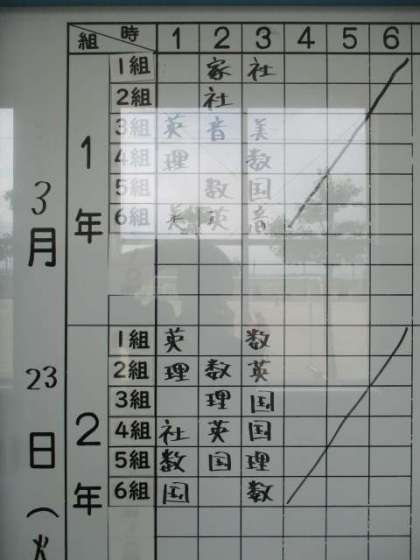 組 時 1 2 3 4 5 6
3月23日(火
1年
1組 家 社
2組 社
3組 英 音 美
4組 理 数
5組 数 国
6組 美 英 音
2年
1組 英 数
2組 理 数 英
3組 理 国
4組 社 英 国
5組 数 国 理
6組 国 数